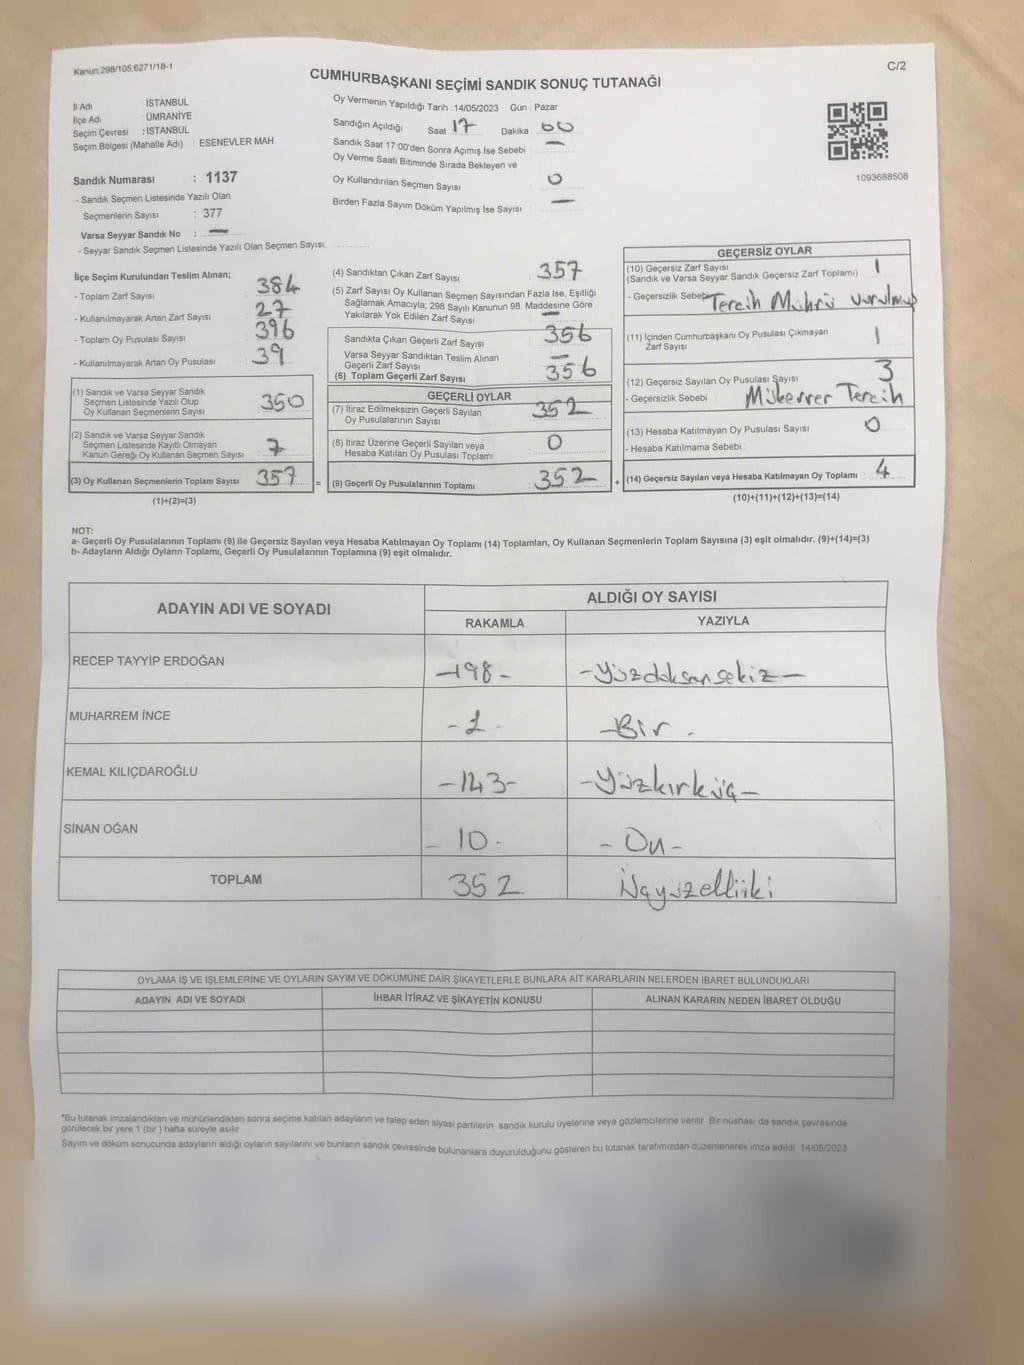 Kanun 298/105,6271/18-1
C/2
CUMHURBAŞKANI SEÇİMİ SANDIK SONUÇ TUTANAĞI
İl Adı İSTANBUL
İlçe Adı ÜMRANİYE
Seçim Çevresi : İSTANBUL
Seçim Bölgesi (Mahalle Adı) : ESENEVLER MAH.
Sandık Numarası : 1137
- Sandık Seçmen Listesinde Yazılı Olan
Seçmenlerin Sayısı : 377
Varsa Seyyar Sandık No : —
- Seyyar Sandık Seçmen Listesinde Yazılı Olan Seçmen Sayısı:
Oy Vermenin Yapıldığı Tarih : 14/05/2023 Gün : Pazar
Sandığın Açıldığı Saat 17 Dakika 00
Sandık Saat 17:00'den Sonra Açımış İse Sebebi —
Oy Verme Saati Bitiminde Sırada Bekleyen ve
Oy Kullandırılan Seçmen Sayısı 0
Birden Fazla Sayım Döküm Yapılmış İse Sayısı —
1093688508
İlçe Seçim Kurulundan Teslim Alınan;
- Toplam Zarf Sayısı 384
- Kullanılmayarak Artan Zarf Sayısı 27
- Toplam Oy Pusulası Sayısı 396
- Kullanılmayarak Artan Oy Pusulası 39
(1) Sandık ve Varsa Seyyar Sandık
Seçmen Listesinde Yazılı Olup
Oy Kullanan Seçmenlerin Sayısı 350
(2) Sandık ve Varsa Seyyar Sandık
Seçmen Listesinde Kayıtlı Olmayan
Kanun Gereği Oy Kullanan Seçmen Sayısı 7
(3) Oy Kullanan Seçmenlerin Toplam Sayısı 357 =
(1)+(2)=(3)
(4) Sandıktan Çıkan Zarf Sayısı 357
(5) Zarf Sayısı Oy Kullanan Seçmen Sayısından Fazla İse, Eşitliği
Sağlamak Amacıyla, 298 Sayılı Kanunun 98. Maddesine Göre
Yakılarak Yok Edilen Zarf Sayısı —
Sandıkta Çıkan Geçerli Zarf Sayısı 356
Varsa Seyyar Sandıktan Teslim Alınan
Geçerli Zarf Sayısı —
(6) Toplam Geçerli Zarf Sayısı 356
GEÇERLİ OYLAR
(7) İtiraz Edilmeksizin Geçerli Sayılan
Oy Pusulalarının Sayısı 352
(8) İtiraz Üzerine Geçerli Sayılan veya
Hesaba Katılan Oy Pusulası Toplamı 0
(9) Geçerli Oy Pusulalarının Toplamı 352 +
GEÇERSİZ OYLAR
(10) Geçersiz Zarf Sayısı 1
(Sandık ve Varsa Seyyar Sandık Geçersiz Zarf Toplamı)
- Geçersizlik Sebebi Tercih Mührü vurulmuş
(11) İçinden Cumhurbaşkanı Oy Pusulası Çıkmayan
Zarf Sayısı 1
(12) Geçersiz Sayılan Oy Pusulası Sayısı 3
- Geçersizlik Sebebi : Mükerrer Tercih
(13) Hesaba Katılmayan Oy Pusulası Sayısı 0
- Hesaba Katılmama Sebebi
(14) Geçersiz Sayılan veya Hesaba Katılmayan Oy Toplamı : 4
(10)+(11)+(12)+(13)=(14)
NOT:
a- Geçerli Oy Pusulalarının Toplamı (9) ile Geçersiz Sayılan veya Hesaba Katılmayan Oy Toplamı (14) Toplamları, Oy Kullanan Seçmenlerin Toplam Sayısına (3) eşit olmalıdır. (9)+(14)=(3)
b- Adayların Aldığı Oyların Toplamı, Geçerli Oy Pusulalarının Toplamına (9) eşit olmalıdır.
ADAYIN ADI VE SOYADI
ALDIĞI OY SAYISI
RAKAMLA YAZIYLA
RECEP TAYYİP ERDOĞAN —198- -Yüzdoksansekiz—
MUHARREM İNCE -1- —Bir.
KEMAL KILIÇDAROĞLU —143- -Yüzkırküç—
SİNAN OĞAN - 10 - - On -
TOPLAM 352 Üçyüzelliiki
OYLAMA İŞ VE İŞLEMLERİNE VE OYLARIN SAYIM VE DÖKÜMÜNE DAİR ŞİKAYETLERLE BUNLARA AİT KARARLARIN NELERDEN İBARET BULUNDUKLARI
ADAYIN ADI VE SOYADI İHBAR İTİRAZ VE ŞİKAYETİN KONUSU ALINAN KARARIN NEDEN İBARET OLDUĞU
*Bu tutanak imzalandıktan ve mühürlendikten sonra seçime katılan adayların ve talep eden siyasi partilerin sandık kurulu üyelerine veya gözlemcilerine verilir. Bir nüshası da sandık çevresinde
görülecek bir yere 1 (bir) hafta süreyle asılır
Sayım ve döküm sonucunda adayların aldığı oyların sayılarını ve bunların sandık çevresinde bulunanlara duyurulduğunu gösteren bu tutanak tarafımızdan düzenlenerek imza edildi 14/05/2023